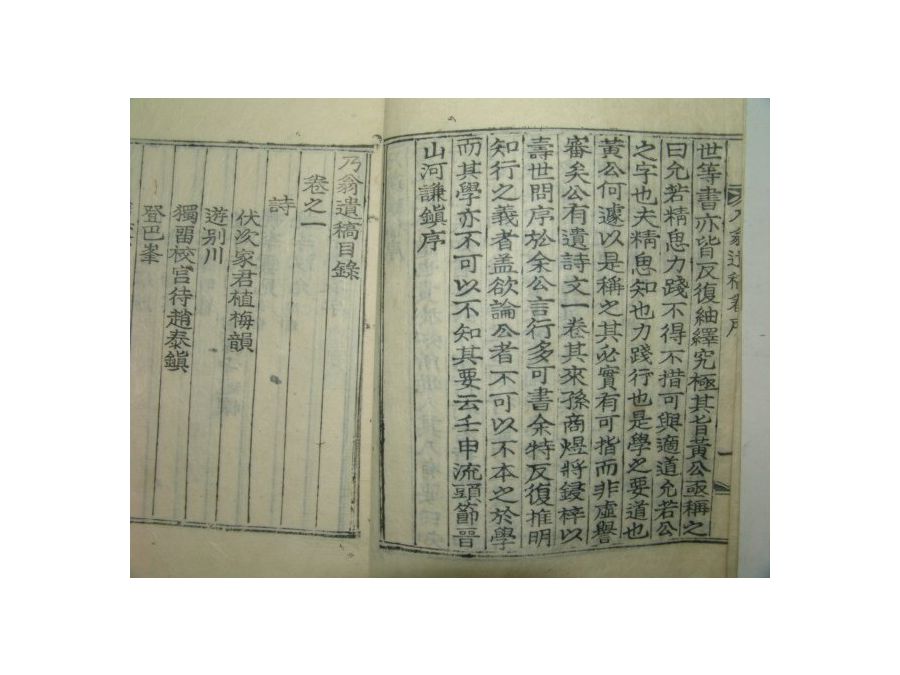 乃翁遺稿卷序
一
世等書亦皆反復紬繹究極其旨黃公亟稱之
曰允若精思力踐不得不措可與適道允若公
之字也夫精思知也力踐行也是學之要道也
黃公何遽以是稱之其必實有可指而非虛譽
審矣公有遺詩文一卷其來孫商煜將鋟梓以
壽世問序於余公言行多可書余特反復推明
知行之義者盖欲論公者不可以不本之於學
而其學亦不可以不知其要云壬申流頭節晉
山河謙鎭序
乃翁遺稿目錄
卷之一
詩
伏次家君植梅韻
遊別川
獨留校宮待趙泰鎭
登巴峯